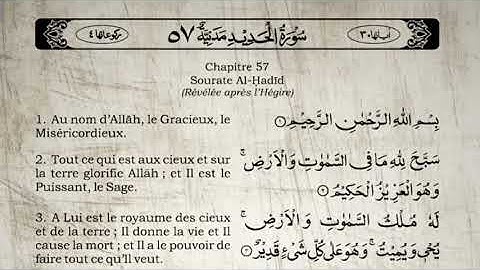 اٰیاتها ٣٠
سُوْرَةُ الْحَدِيْدِ مَدَنِيَّةٌ ٥٧
رکوعاتها ٤
Chapitre 57
Sourate Al-Ḥadīd
(Révélée après l'Hégire)
1. Au nom d'Allāh, le Gracieux, le
Miséricordieux.
بِسْمِ اللّٰهِ الرَّحْمٰنِ الرَّحِيْمِ ۝١
2. Tout ce qui est aux cieux et sur
la terre glorifie Allāh ; et Il est le
Puissant, le Sage.
سَبَّحَ لِلّٰهِ مَا فِى السَّمٰوٰتِ وَالْاَرْضِ ۚ
وَهُوَ الْعَزِيْزُ الْحَكِيْمُ ۝٢
3. A Lui est le royaume des cieux
et de la terre ; Il donne la vie et Il
cause la mort ; et Il a le pouvoir de
faire tout ce qu'Il veut.
لَهٗ مُلْكُ السَّمٰوٰتِ وَالْاَرْضِ ۚ
يُحْيٖ وَيُمِيْتُ ۚ وَهُوَ عَلٰى كُلِّ شَىْءٍ قَدِيْرٌ ۝٣